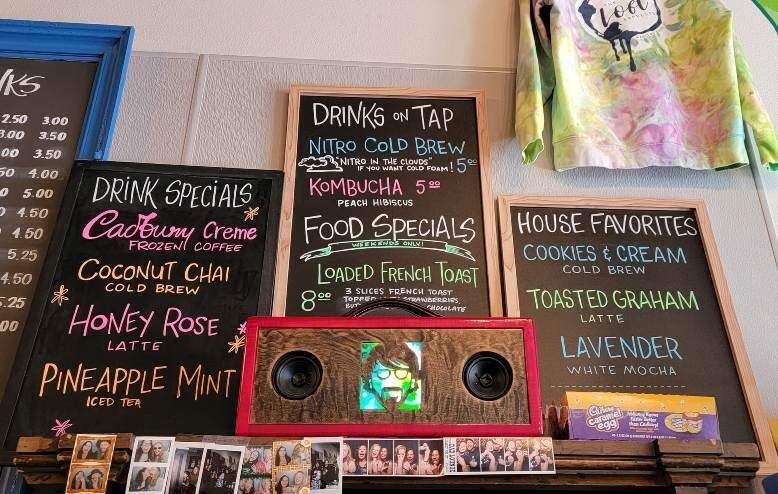 KS
2.50 3.00
3.00 3.50
3.50
5.00
4.50
4.50
5.25
4.50
5.25
4.00
DRINK SPECIALS
Cadbury Creme
FROZEN COFFEE
COCONUT CHAI
COLD BREW
HONEY ROSE
LATTE
PINEAPPLE MINT
ICED TEA
DRINKS ON TAP
NITRO COLD BREW
"NITRO IN THE CLOUDS"
IF YOU WANT COLD FOAM! 5.00
KOMBUCHA 5.00
PEACH HIBISCUS
FOOD SPECIALS
WEEKENDS ONLY!
LOADED FRENCH TOAST
8.00 3 SLICES FRENCH TOAST
STRAWBERRIES
CHOCOLATE
HOUSE FAVORITES
COOKIES & CREAM
COLD BREW
TOASTED GRAHAM
LATTE
LAVENDER
WHITE MOCHA
Cadbury
caramel
egg